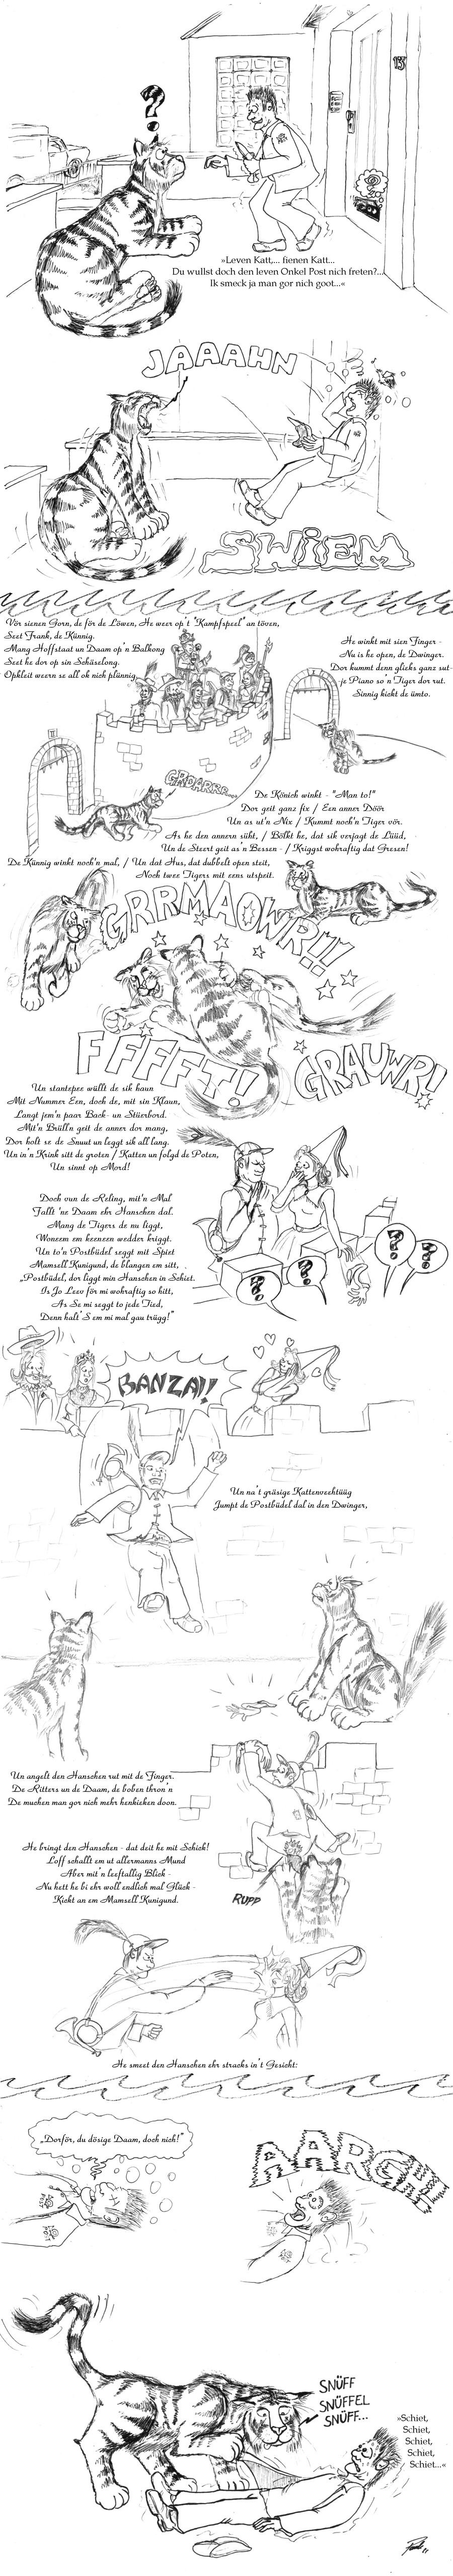 ?
13
»Leven Katt,... fienen Katt...
Du wullst doch den leven Onkel Post nich freten?...
Ik smeck ja man gor nich goot...«
JAAAHN
SWIEM
Vör sienen Gorn, de för de Löwen, He weer op't "Kampfspeel" an töven,
Seet Frank, de Künnig.
Mang Hoffstaat un Daam op'n Balkong
Seet he dor op sin Schäselong.
Opkleit weern se all ok nich plünnig.
He winkt mit sien Finger -
Nu is he open, de Dwinger.
Dor kummt denn glieks ganz sut-
-je Piano so'n Tiger dor rut.
Sinnig kickt de ümto.
GROARRR...
De Könich winkt - "Man to!"
Dor geit ganz fix / Een anner Döör
Un as ut'n Nix / Kummt noch'n Tiger vör.
As he den annern süht, / Bölkt he, dat sik verjagt de Lüüd,
Un de Steert geit as'n Bessen - / Kriggst wohraftig dat Gresen!
De Künnig winkt noch'n mal, / Un dat Hus, dat dubbelt open steit,
Noch twee Tigers mit eens utspeit.
GRRMAOWR!!!
FFFFT!
GRAUWR!
Un stantepee wüllt de sik haun
Mit Nummer Een, doch de, mit sin Klaun,
Langt jem'n paar Back- un Stüerbord.
Mit'n Brülln geit de anner dor mang,
Dor holt se de Snuut un leggt sik all lang.
Un in'n Krink sitt de groten / Katten un folgd de Poten,
Un sinnt op Mord!
Doch vun de Reling, mit'n Mal
Fallt 'ne Daam ehr Hanschen dal.
Mang de Tigers de nu liggt,
Woneem em keeneen wedder kriggt.
Un to'n Postbüdel seggt mit Spiet
Mamsell Kunigund, de blangen em sitt,
„Postbüdel, dor liggt min Hanschen in Schiet.
Is Jo Leev för mi wohraftig so hitt,
As Se mi seggt to jede Tied,
Denn halt'S em mi mal gau trügg!"
? ? ? ?
BANZAI!
Un na't gräsige Kattenveehtüüg
Jumpt de Postbüdel dal in den Dwinger,
Un angelt den Hanschen rut mit de Finger.
De Ritters un de Daam, de boben thron'n
De muchen man gor nich mehr henkieken doon.
He bringt den Hanschen - dat deit he mit Schick!
Loff schallt em ut allermanns Mund
Aber mit'n leeftallig Blick -
Nu hett he bi ehr woll endlich mal Glück -
Kickt an em Mamsell Kunigund.
RUPP
He smeet den Hanschen ehr stracks in't Gesicht:
„Dorför, du dösige Daam, doch nich!"
AARGH!
SNÜFF
SNÜFFEL
SNÜFF...
»Schiet,
Schiet,
Schiet,
Schiet,
Schiet...«